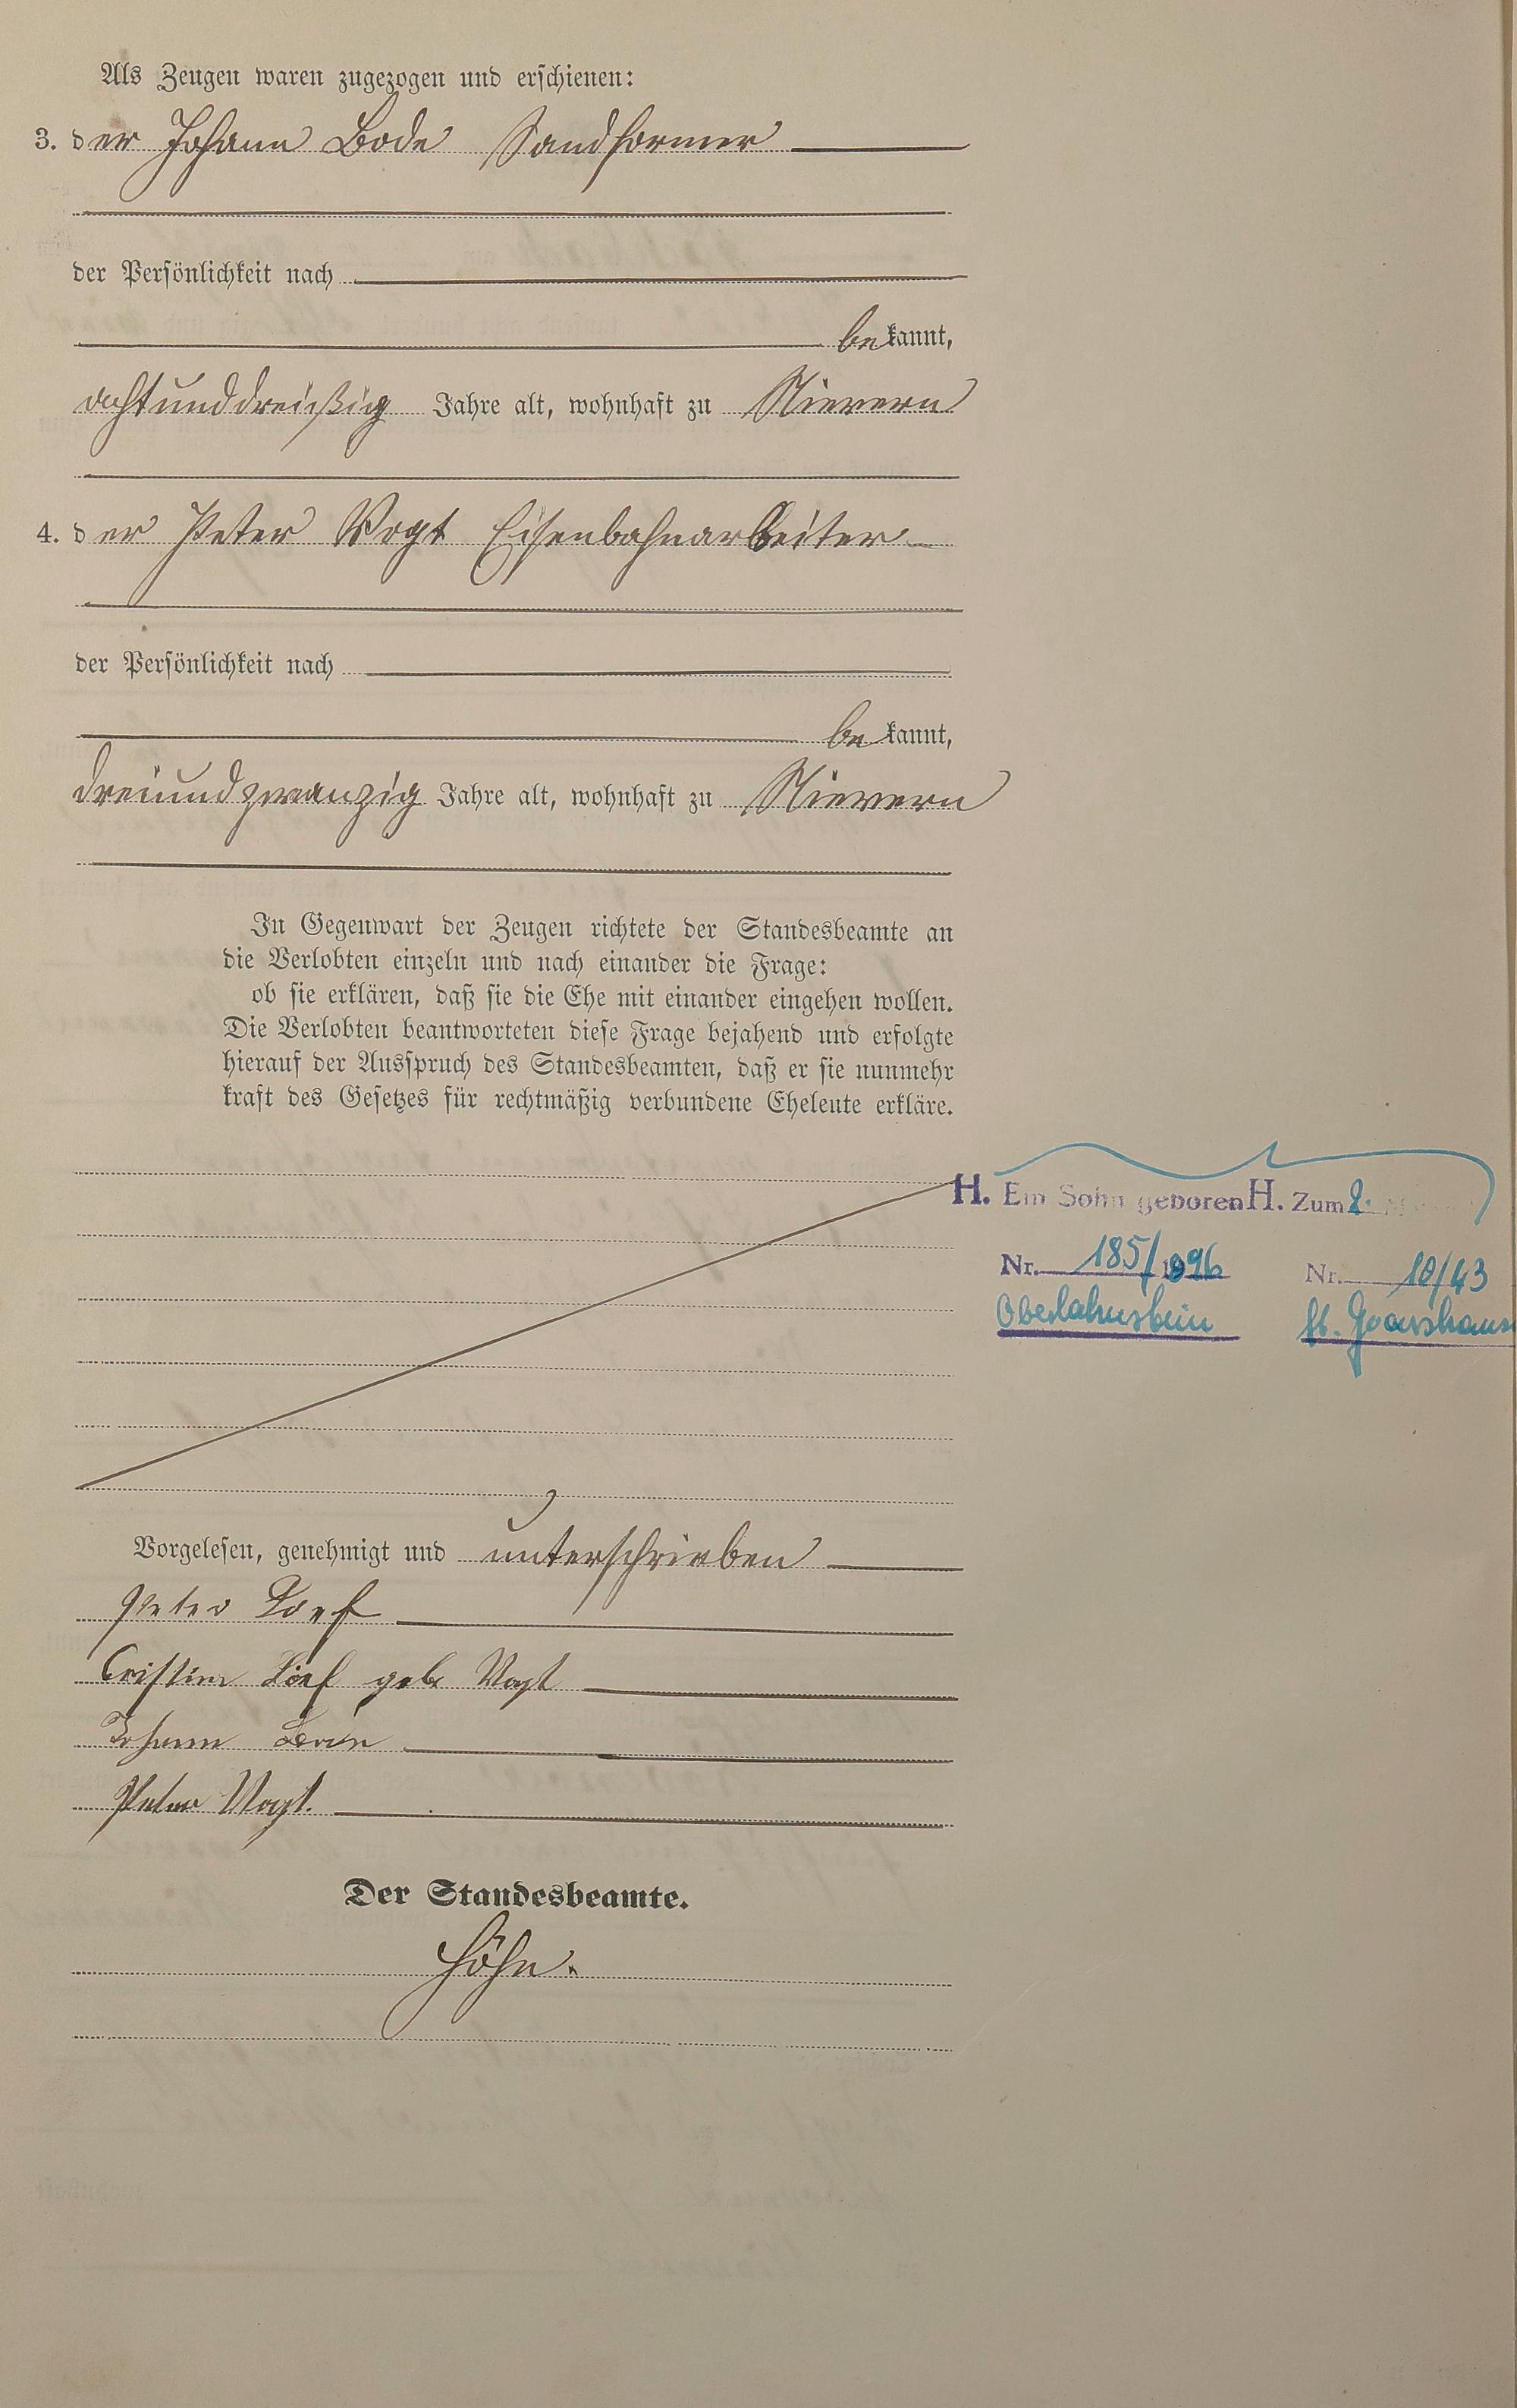 Als Zeugen waren zugezogen und erschienen:
3. der Johann Bode Sandformer
der Persönlichkeit nach
bekannt,
achtunddreißig Jahre alt, wohnhaft zu Nievern
4. der Peter Vogt Eisenbahnarbeiter
der Persönlichkeit nach
bekannt,
dreiundzwanzig Jahre alt, wohnhaft zu Nievern
In Gegenwart der Zeugen richtete der Standesbeamte an
die Verlobten einzeln und nach einander die Frage:
ob sie erklären, daß sie die Ehe mit einander eingehen wollen.
Die Verlobten beantworteten diese Frage bejahend und erfolgte
hierauf der Ausspruch des Standesbeamten, daß er sie nunmehr
kraft des Gesetzes für rechtmäßig verbundene Eheleute erkläre.
H. Ein Sohn geboren H. Zum 2.
Nr. 185/1896 Nr. 10/43
Oberlahnstein St. Goarshaus
Vorgelesen, genehmigt und unterschrieben
Peter
Cristine geb Vogt
Johann Bode
Peter Vogt.
Der Standesbeamte.
Höhn.